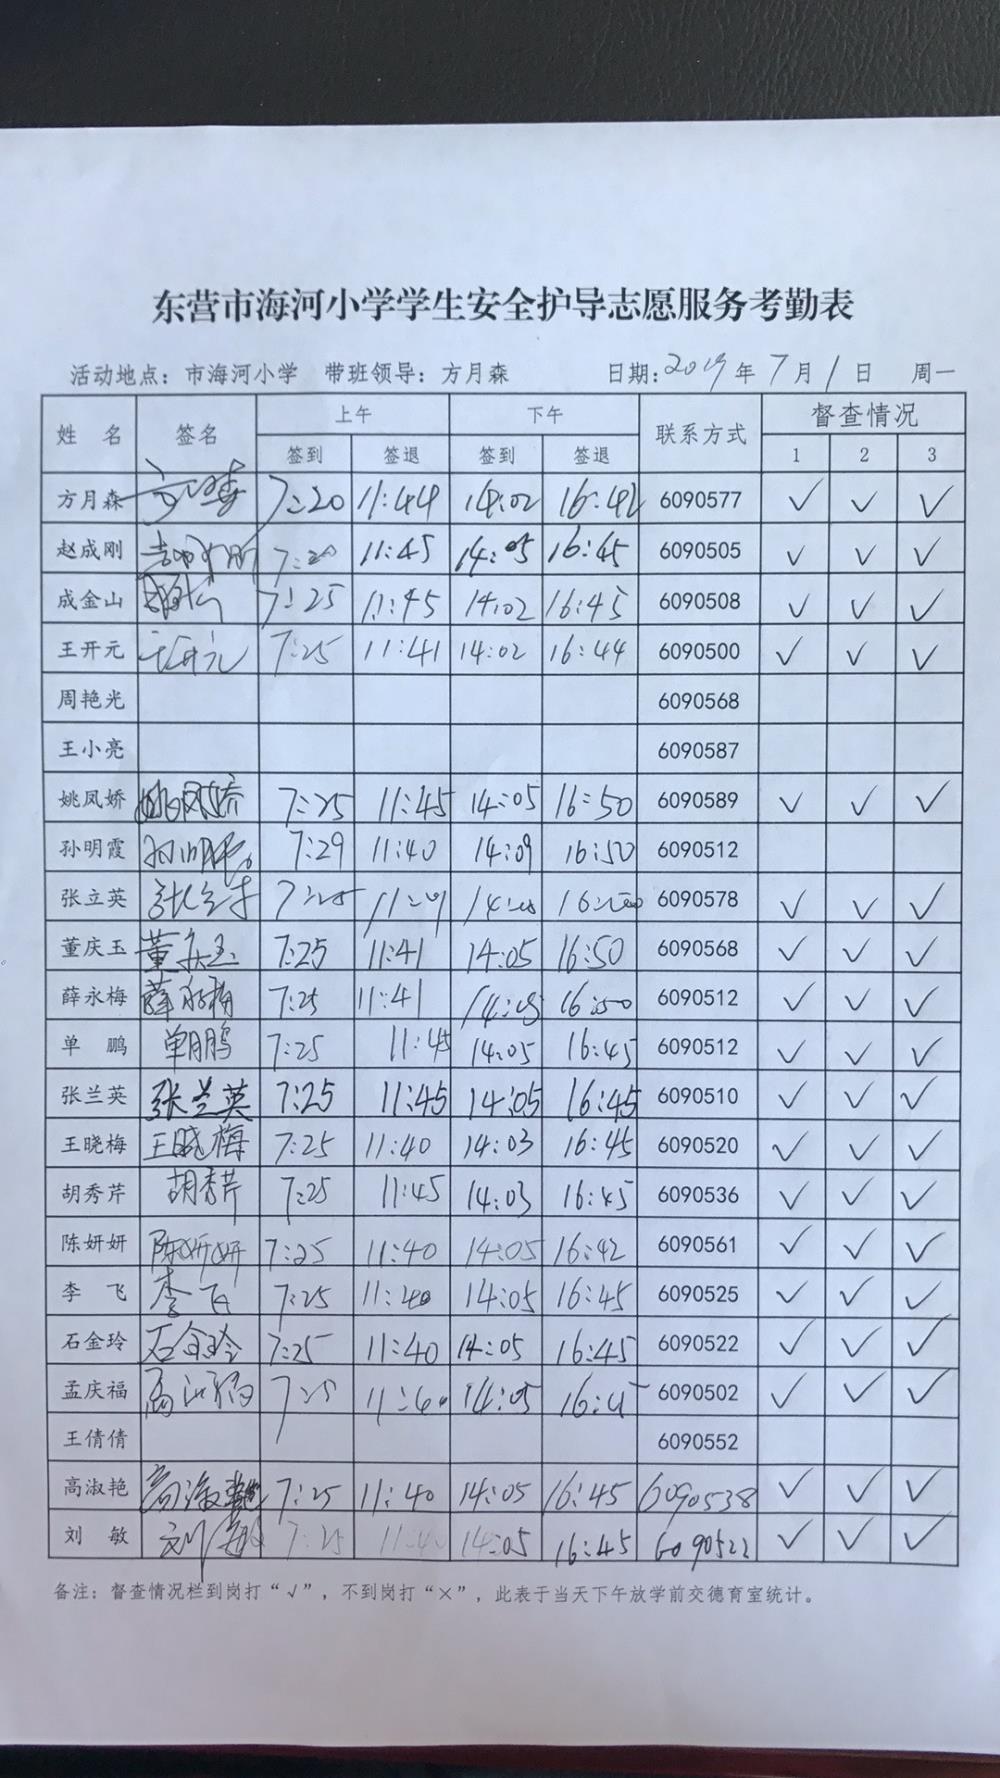 东营市海河小学学生安全护导志愿服务考勤表
活动地点：市海河小学 带班领导：方月森 日期：2019年7月1日 周一
姓 名 签名 上午 下午 联系方式 督查情况
签到 签退 签到 签退 1 2 3
方月森 7:20 11:44 14:02 16:42 6090577 ✓ ✓ ✓
赵成刚 7:20 11:45 14:05 16:45 6090505 ✓ ✓ ✓
成金山 7:25 11:45 14:02 16:45 6090508 ✓ ✓ ✓
王开元 王开元 7:25 11:41 14:02 16:44 6090500 ✓ ✓ ✓
周艳光 6090568
王小亮 6090587
姚凤娇 姚凤娇 7:25 11:45 14:05 16:50 6090589 ✓ ✓ ✓
孙明霞 孙明霞 7:29 11:40 14:09 16:50 6090512
张立英 张立英 7:25 6090578 ✓ ✓ ✓
董庆玉 董庆玉 7:25 11:41 14:05 16:50 6090568 ✓ ✓ ✓
薛永梅 薛永梅 7:25 11:41 14:05 16:50 6090512 ✓ ✓ ✓
单 鹏 单鹏 7:25 11:45 14:05 16:45 6090512 ✓ ✓ ✓
张兰英 张兰英 7:25 11:45 14:05 16:45 6090510 ✓ ✓ ✓
王晓梅 王晓梅 7:25 11:40 14:03 16:45 6090520 ✓ ✓ ✓
胡秀芹 胡秀芹 7:25 11:45 14:03 16:45 6090536 ✓ ✓ ✓
陈妍妍 陈妍妍 7:25 11:40 14:05 16:42 6090561 ✓ ✓ ✓
李 飞 李飞 7:25 11:40 14:05 16:45 6090525 ✓ ✓ ✓
石金玲 石金玲 7:25 11:40 14:05 16:45 6090522 ✓ ✓ ✓
孟庆福 7:25 11:40 14:05 16:45 6090502 ✓ ✓ ✓
王倩倩 6090552
高淑艳 高淑艳 7:25 11:40 14:05 16:45 6090538 ✓ ✓ ✓
刘 敏 刘敏 7:25 11:40 14:05 16:45 6090522 ✓ ✓ ✓
备注：督查情况栏到岗打“√”，不到岗打“×”，此表于当天下午放学前交德育室统计。